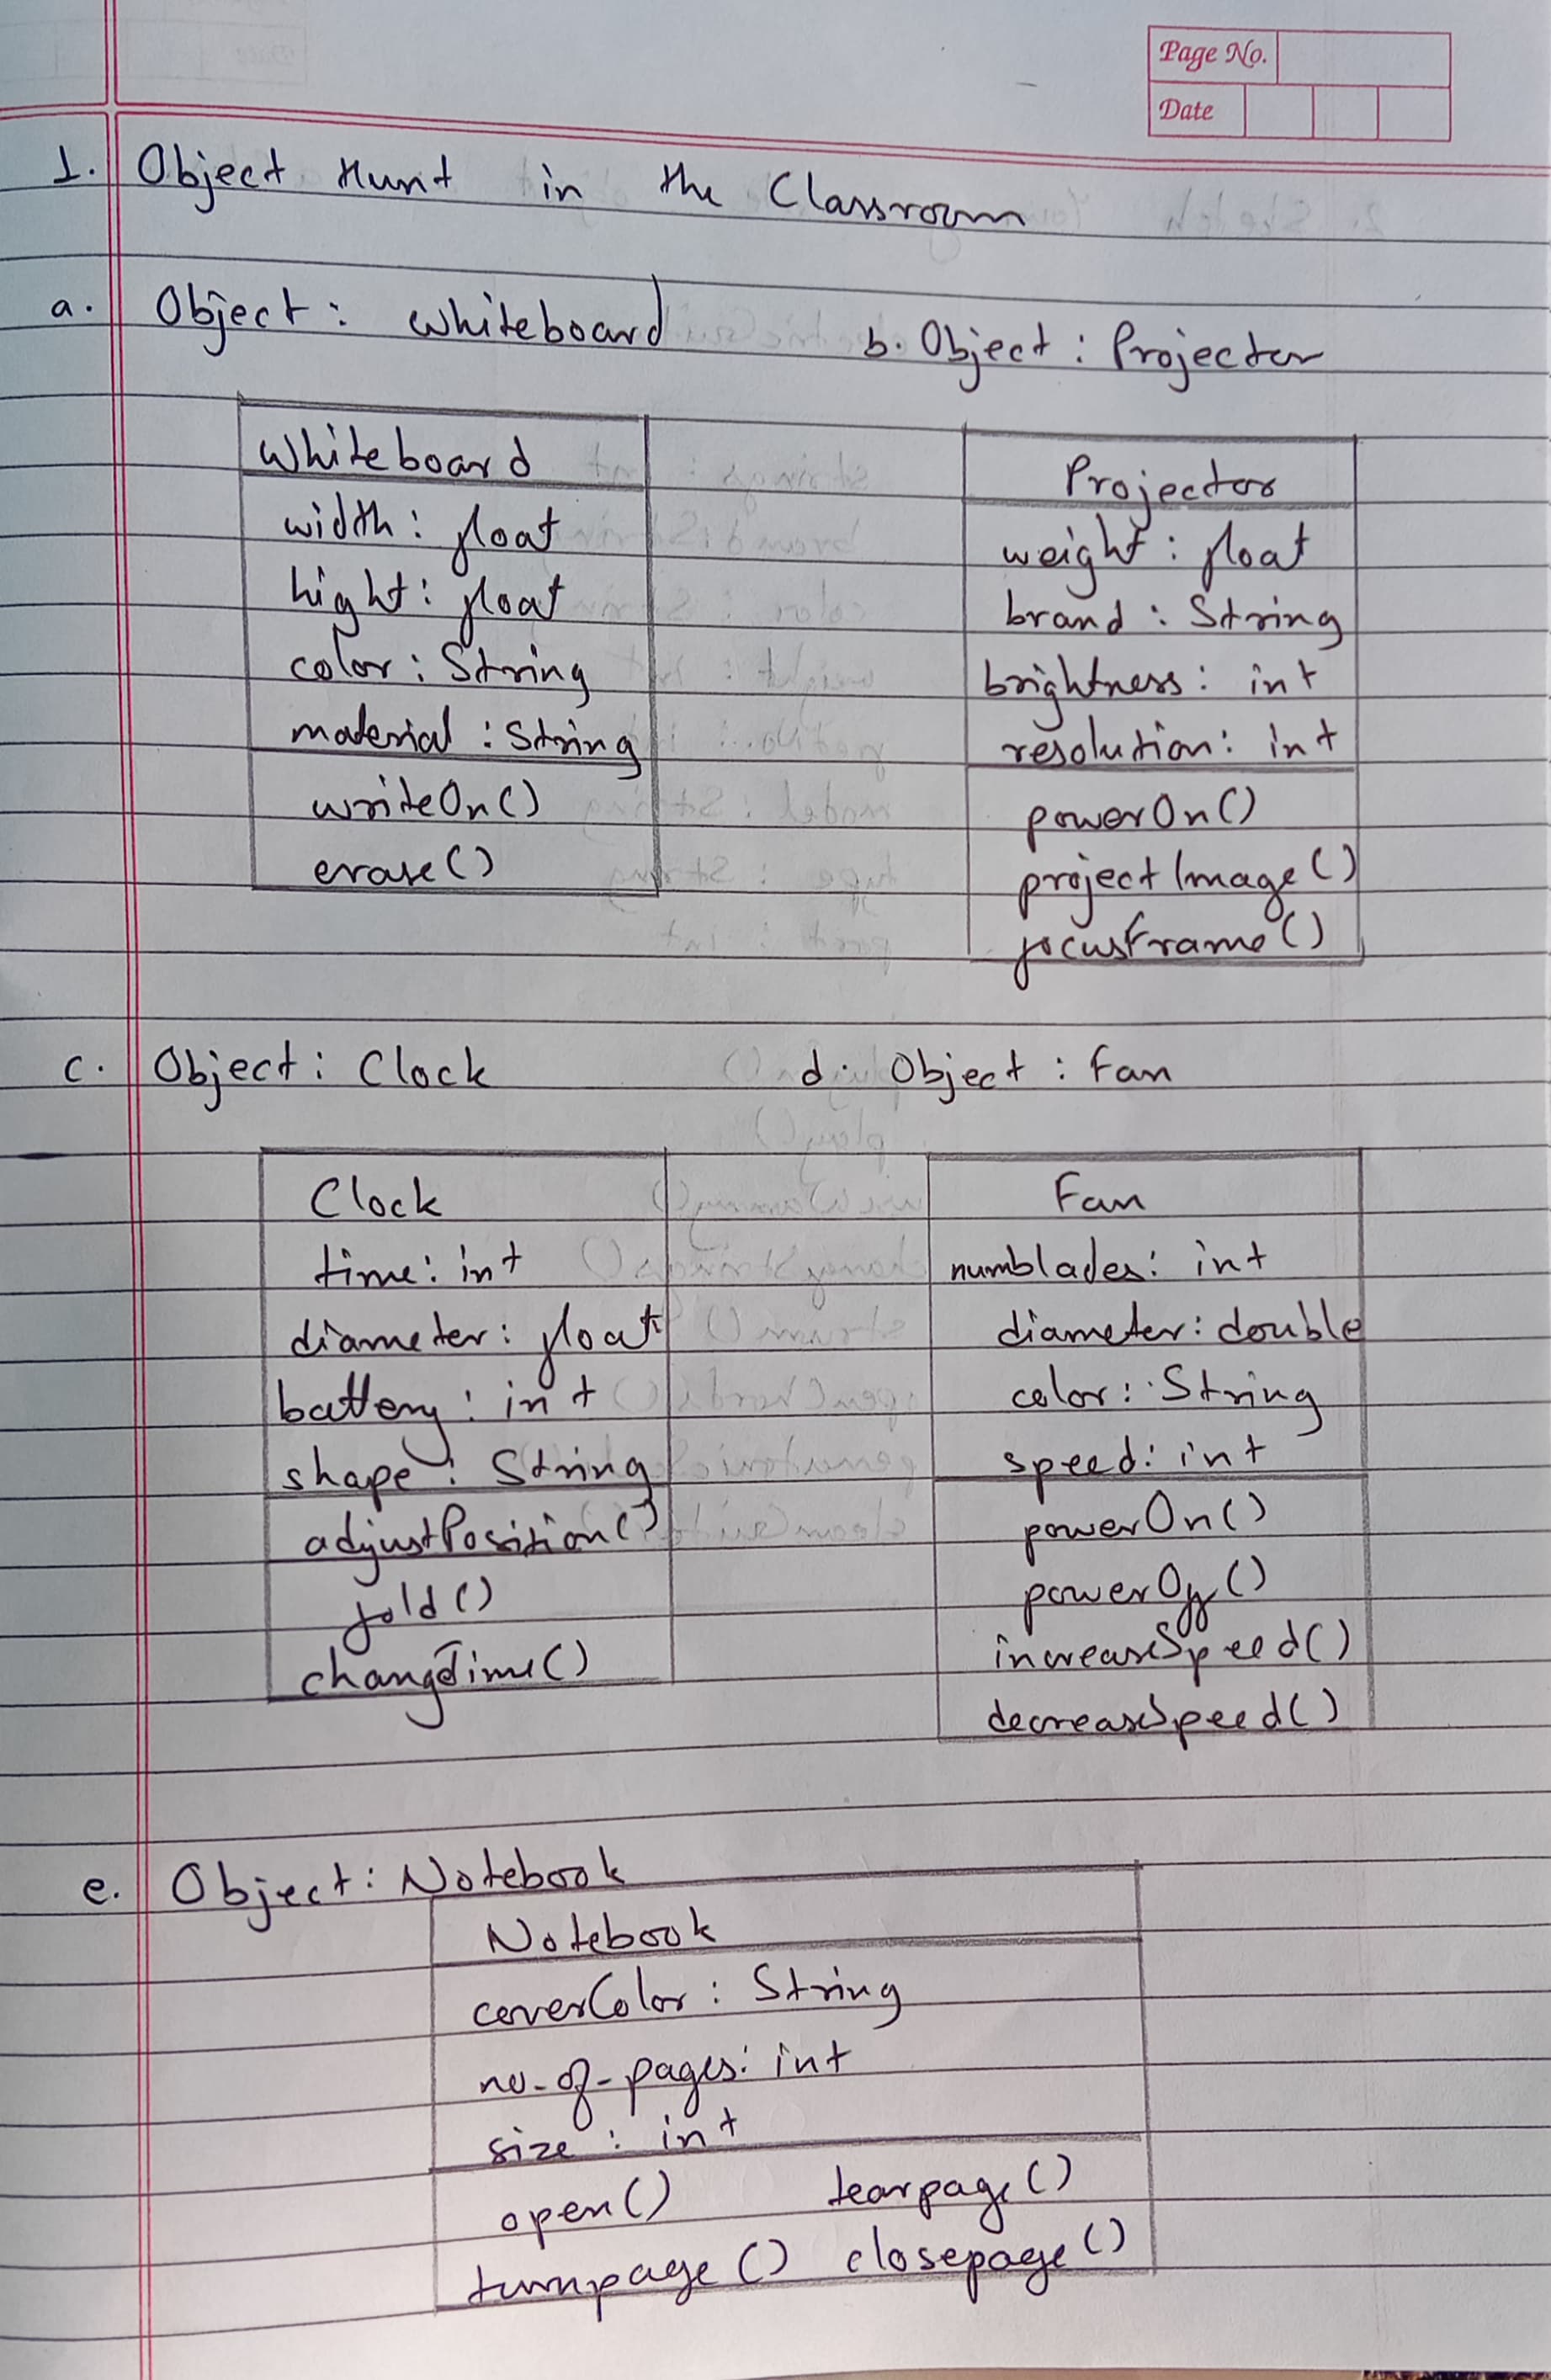 Page No.
Date
1. Object Hunt in the Classroom
a. Object : Whiteboard
Whiteboard
width : float
hight : float
color : String
material : String
writeOn()
erase()
b. Object : Projector
Projector
weight : float
brand : String
brightness : int
resolution : int
powerOn()
projectImage()
focusFrame()
c. Object : Clock
Clock
time : int
diameter : float
battery : int
shape : String
adjustPosition()
fold()
changeTime()
d. Object : Fan
Fan
numblades : int
diameter : double
color : String
speed : int
powerOn()
powerOff()
increaseSpeed()
decreaseSpeed()
e. Object : Notebook
Notebook
coverColor : String
no-of-pages : int
size : int
open() tearpage()
turnpage() closepage()